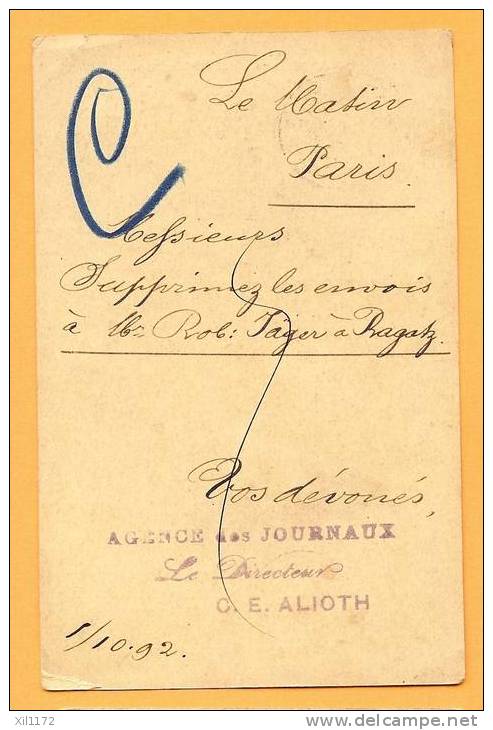 Le Matin
Paris.
Messieurs
Supprimez les envois
à Mr Rob: Jäger à Ragatz.
Vos dévoués,
AGENCE des JOURNAUX
Le Directeur
C. E. ALIOTH
1/10.92.
xil1172
www.delcampe.net